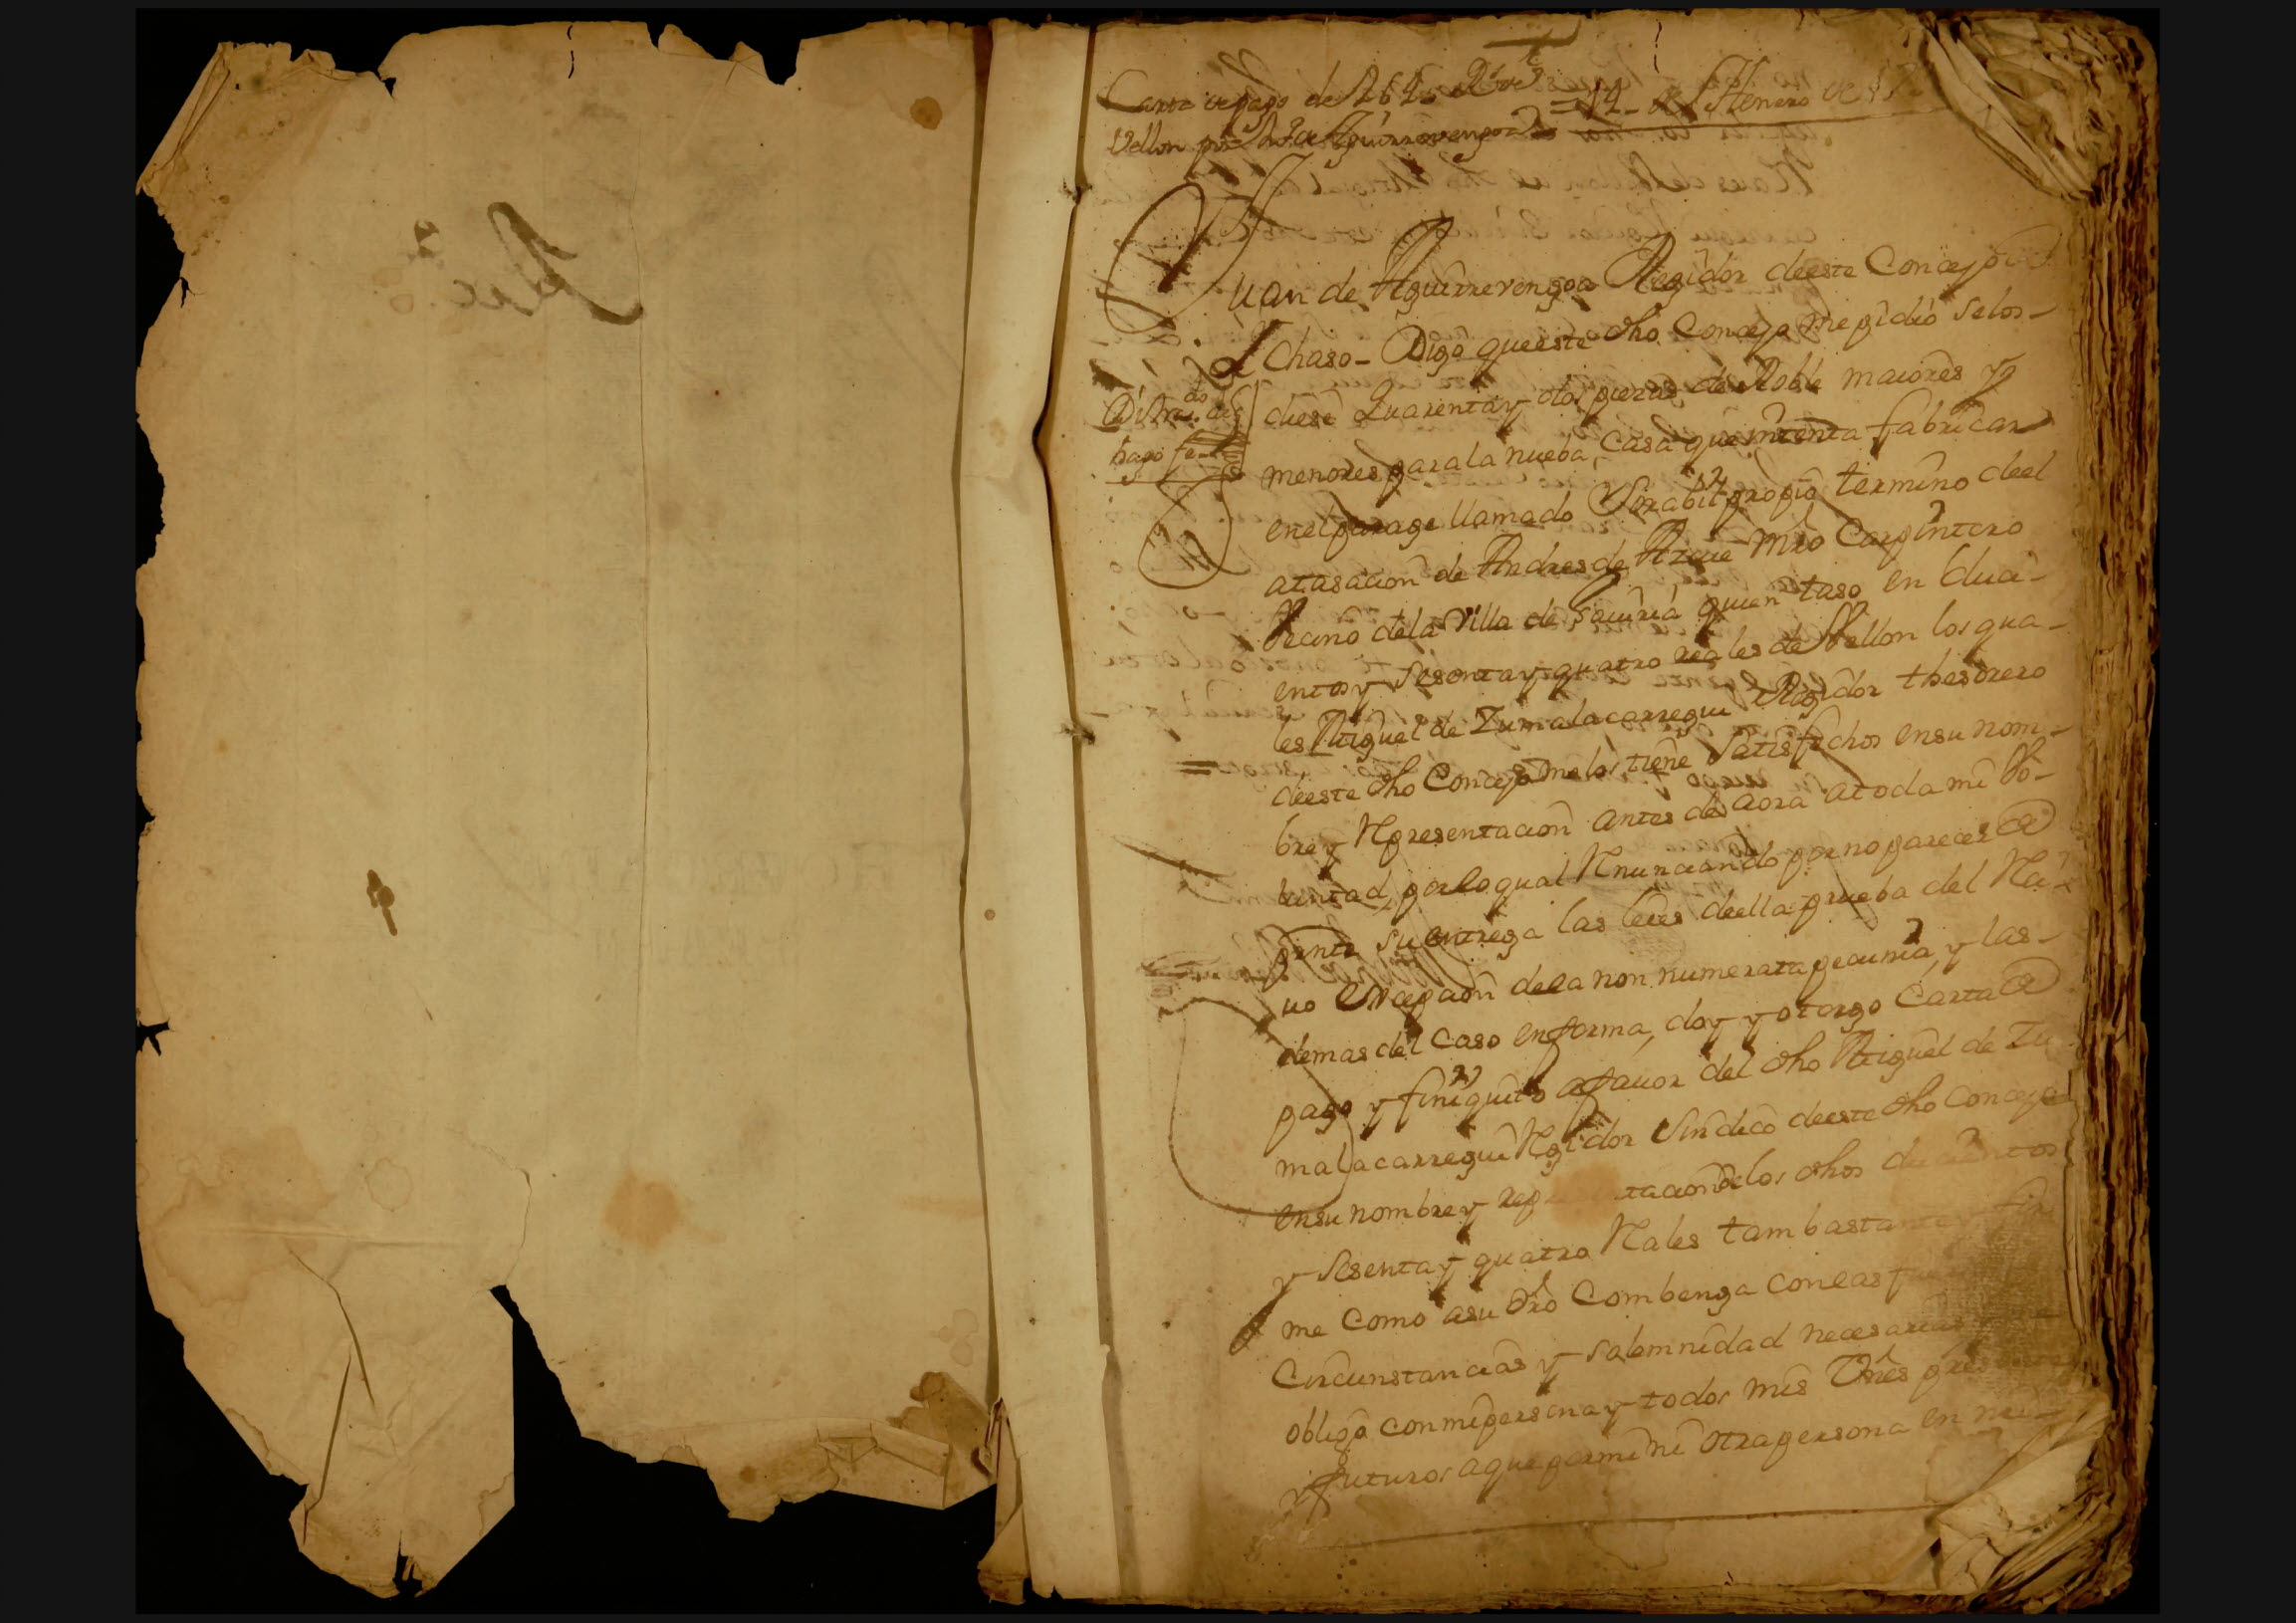 Carta de pago de 264 Rs de
Vellon por Juo de Aguirrevengoa = 14 de Henero de
Juan de Aguirrevengoa Regidor deeste Concejo
de Ychaso - Digo queeste dho Concejo me pidio selos-
diese Quarentay dos piezas de Roble maiores yo
menores parala nueba Casa queintenta fabricar
enel parage llamado propio termino deel
atasacion de Andres de Azcue Mro Carpintero
Vecino dela Villa de Saluria quien taso en duci-
entos y sesentay quatro reales de Vellon los qua-
les Miguel de Zumalacarregui Regidor thesorero
deeste dho Concejo melos tiene Satisfechos ensu nom-
bre y Representacion antes de aora atoda mi Vo-
luntad, por lo qual Renunciando por no parecer de
pronte su entrega las leies deella prueba del Reci-
uo Excepcion dela non numerata pecunia, y las-
demas del Caso en forma, doy y otorgo Carta de
pago y finiquito afauor del dho Miguel de Zu
malacarregui Regidor Sindico deeste dho Concejo
ensu nombre y delos dhos ducientos
y sesentay quatro Reales tam bastante
me como asu dro Combenga conlas
Circunstancias y solemnidad necesarias
obligo con mi persona y todos mis Vnes presentes
y futuros aque pormi ni otra persona en
Dist. do de q
hago fee
Rec.